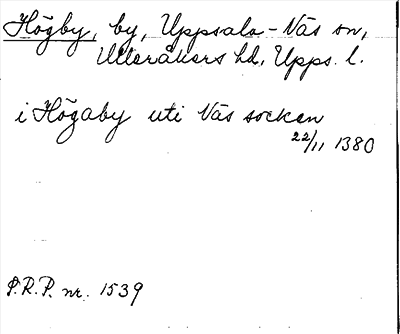 Högby, by, Uppsala-Näs sn,
Ulleråkers hd, Upps. l.
i Högaby uti Näs socken
22/11 1380
S.R.P. nr. 1539